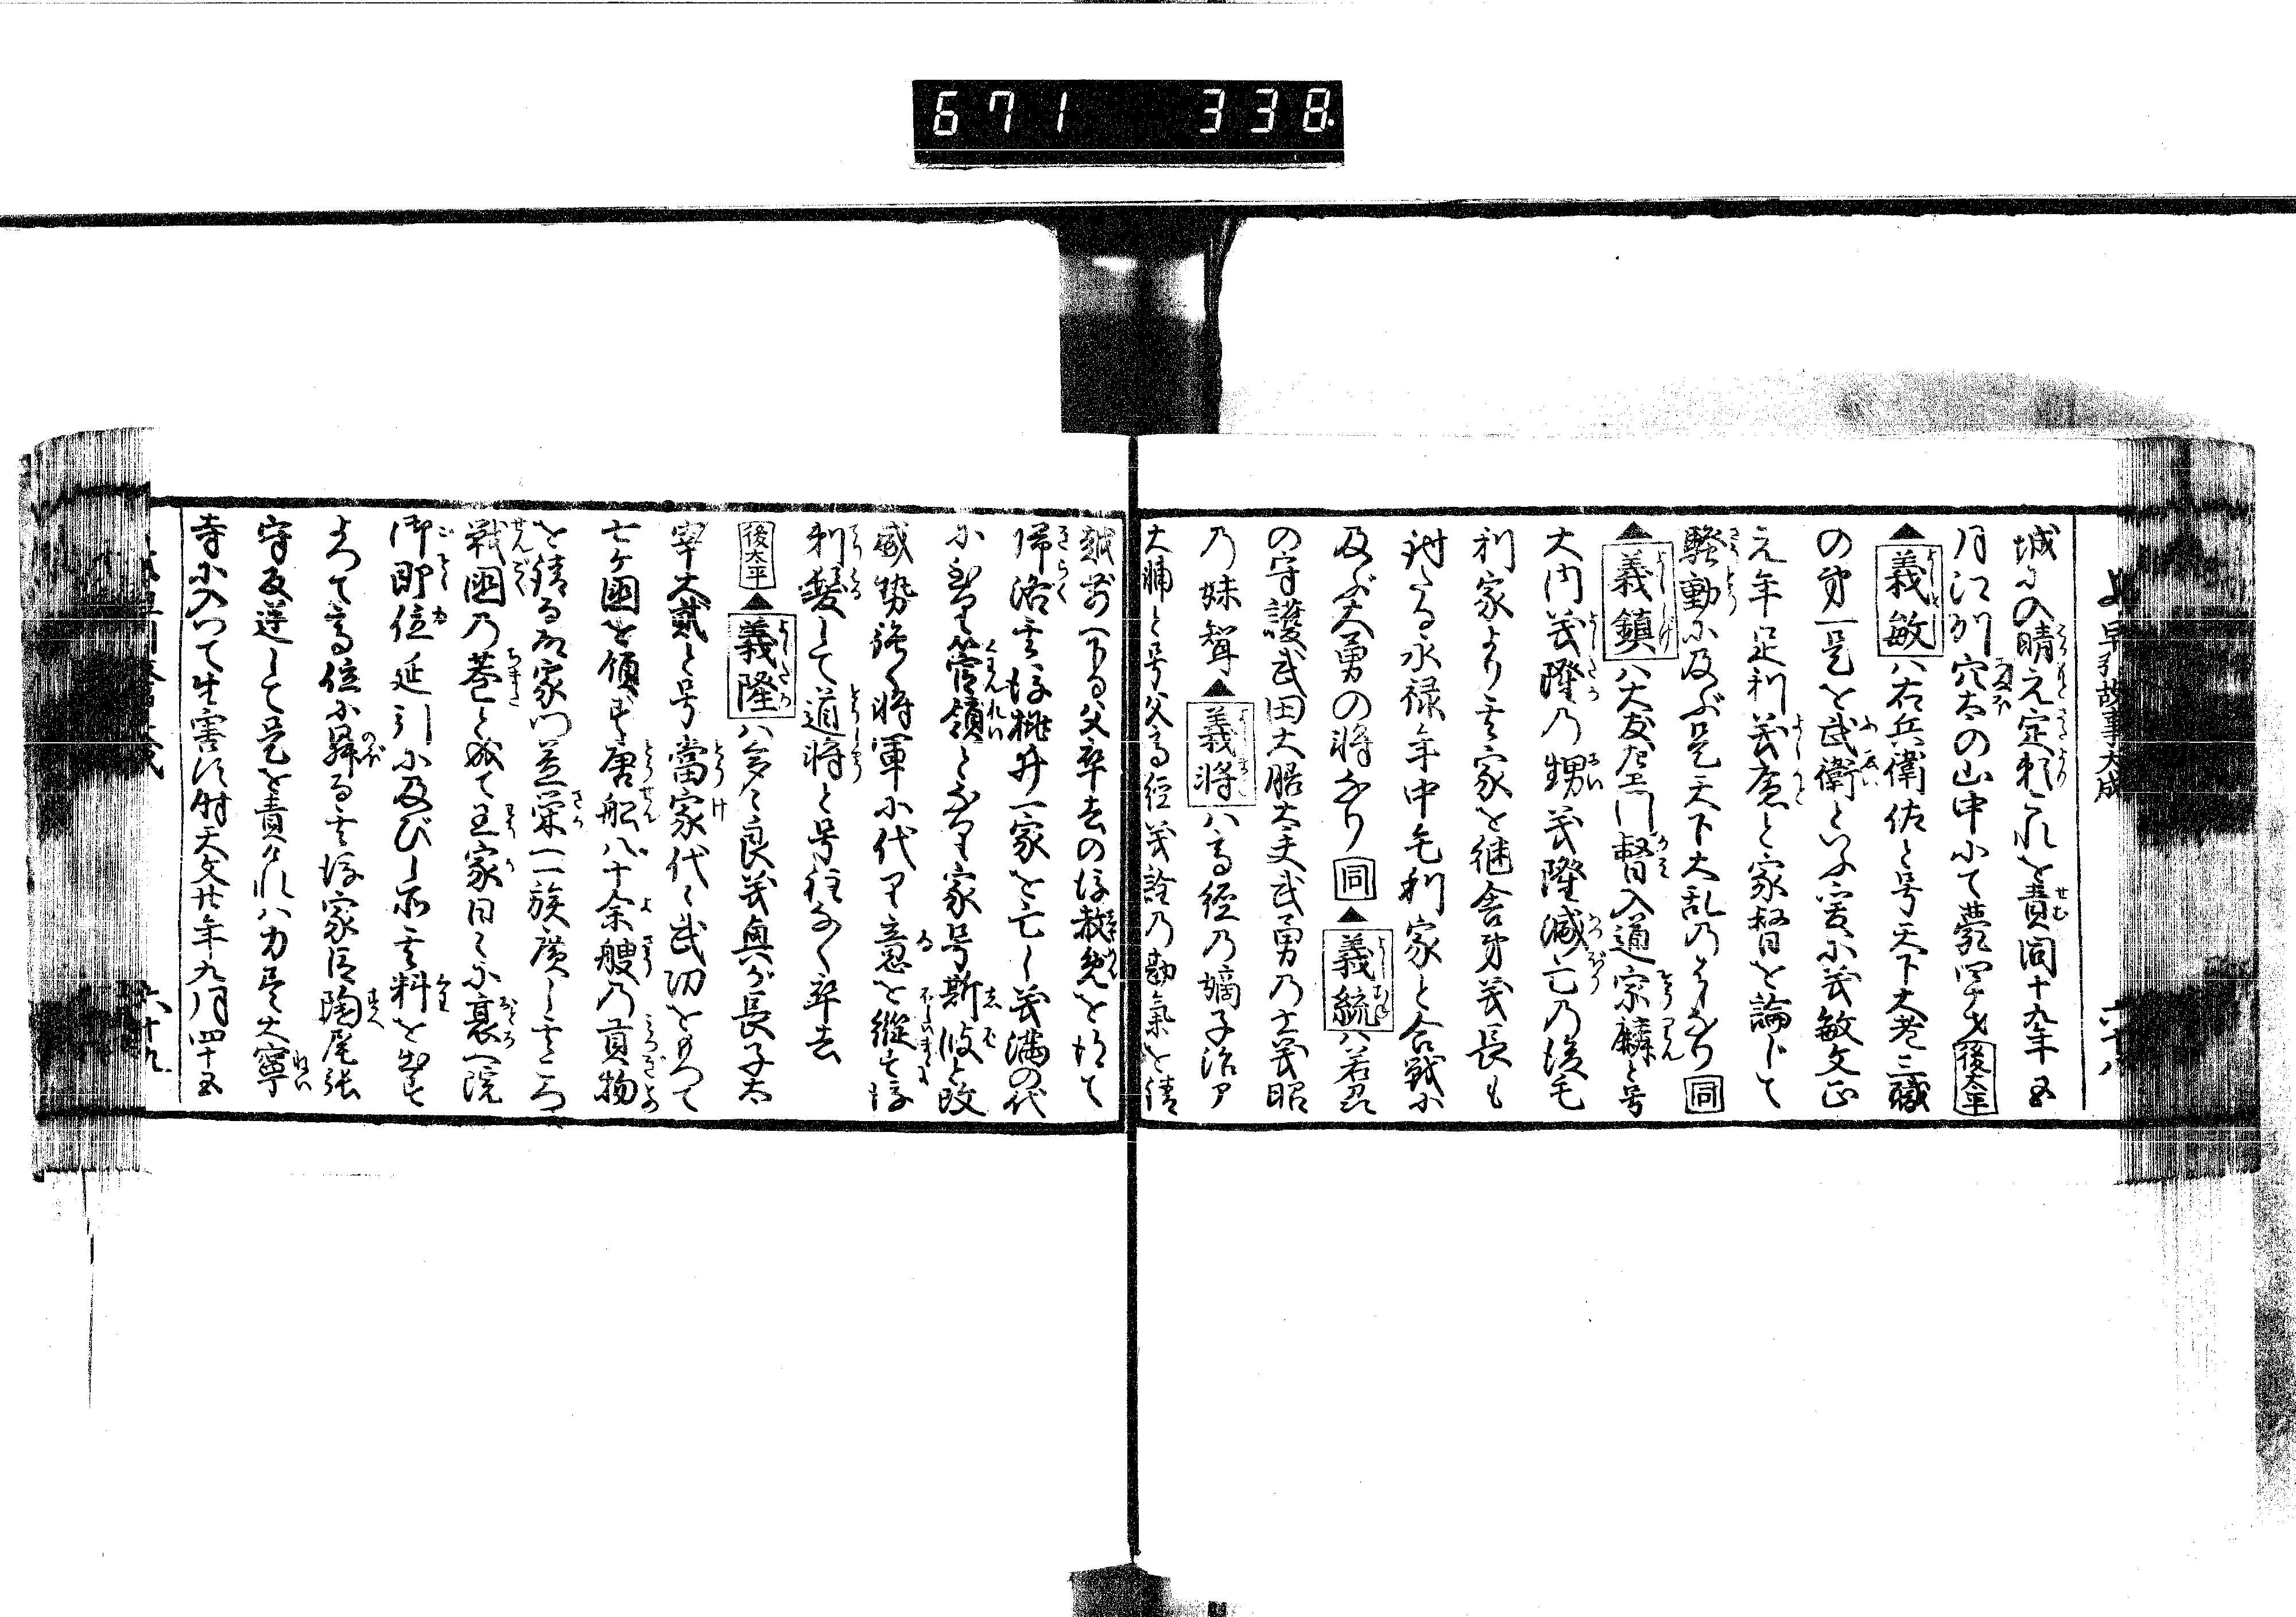 671 338
早引故事大成
六十八
城に入晴元定頼これを責同十九年五
月江州穴太の山中にて薨四十才後太平
▲義敏ハ右兵衛佐と号天下大老三職
の第一是を武衛といふ爰に義敏文正
元年足利義廉と家督を論じて
騒動に及ぶ是天下大乱のはじめなり同
▲義鎮ハ大友左エ門督入道宗麟と号
大内義隆乃甥義隆滅亡乃後毛
利家より其家を継舎弟義長も
討たる永禄年中毛利家と合戦に
及ぶ大勇の将なり同▲義統ハ若狭
の守護武田大膳大夫武勇乃士義昭
乃妹聟▲義将ハ高経乃嫡子治ア
大輔と号父高経義詮乃勘氣を請
越前へ下る父卒去の後赦免を得て
帰洛其後桃井一家を亡し義満の代
に至り管領となり家号斯波と改
威勢強く将軍に代り意を縦にす後
剃髪して道将と号程なく卒去
後太平▲義隆ハ多々良義興が長子太
宰大貳と号當家代々武功をもつて
七ケ國を領ず唐船八十余艘乃貢物
を請る故家門益栄へ一族廣し其ころ
戦國乃巷と成て王家日々に衰へ院
御即位延引に及びし故其料を出す
よつて高位に昇る其後家臣陶尾張
守反逆して是を責けれハ力尽大寧
寺に入つて生害す時天文廿年九月四十五
六十九